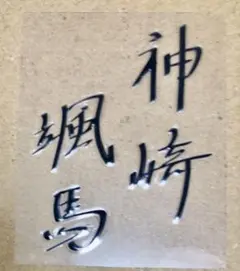 神崎
颯馬